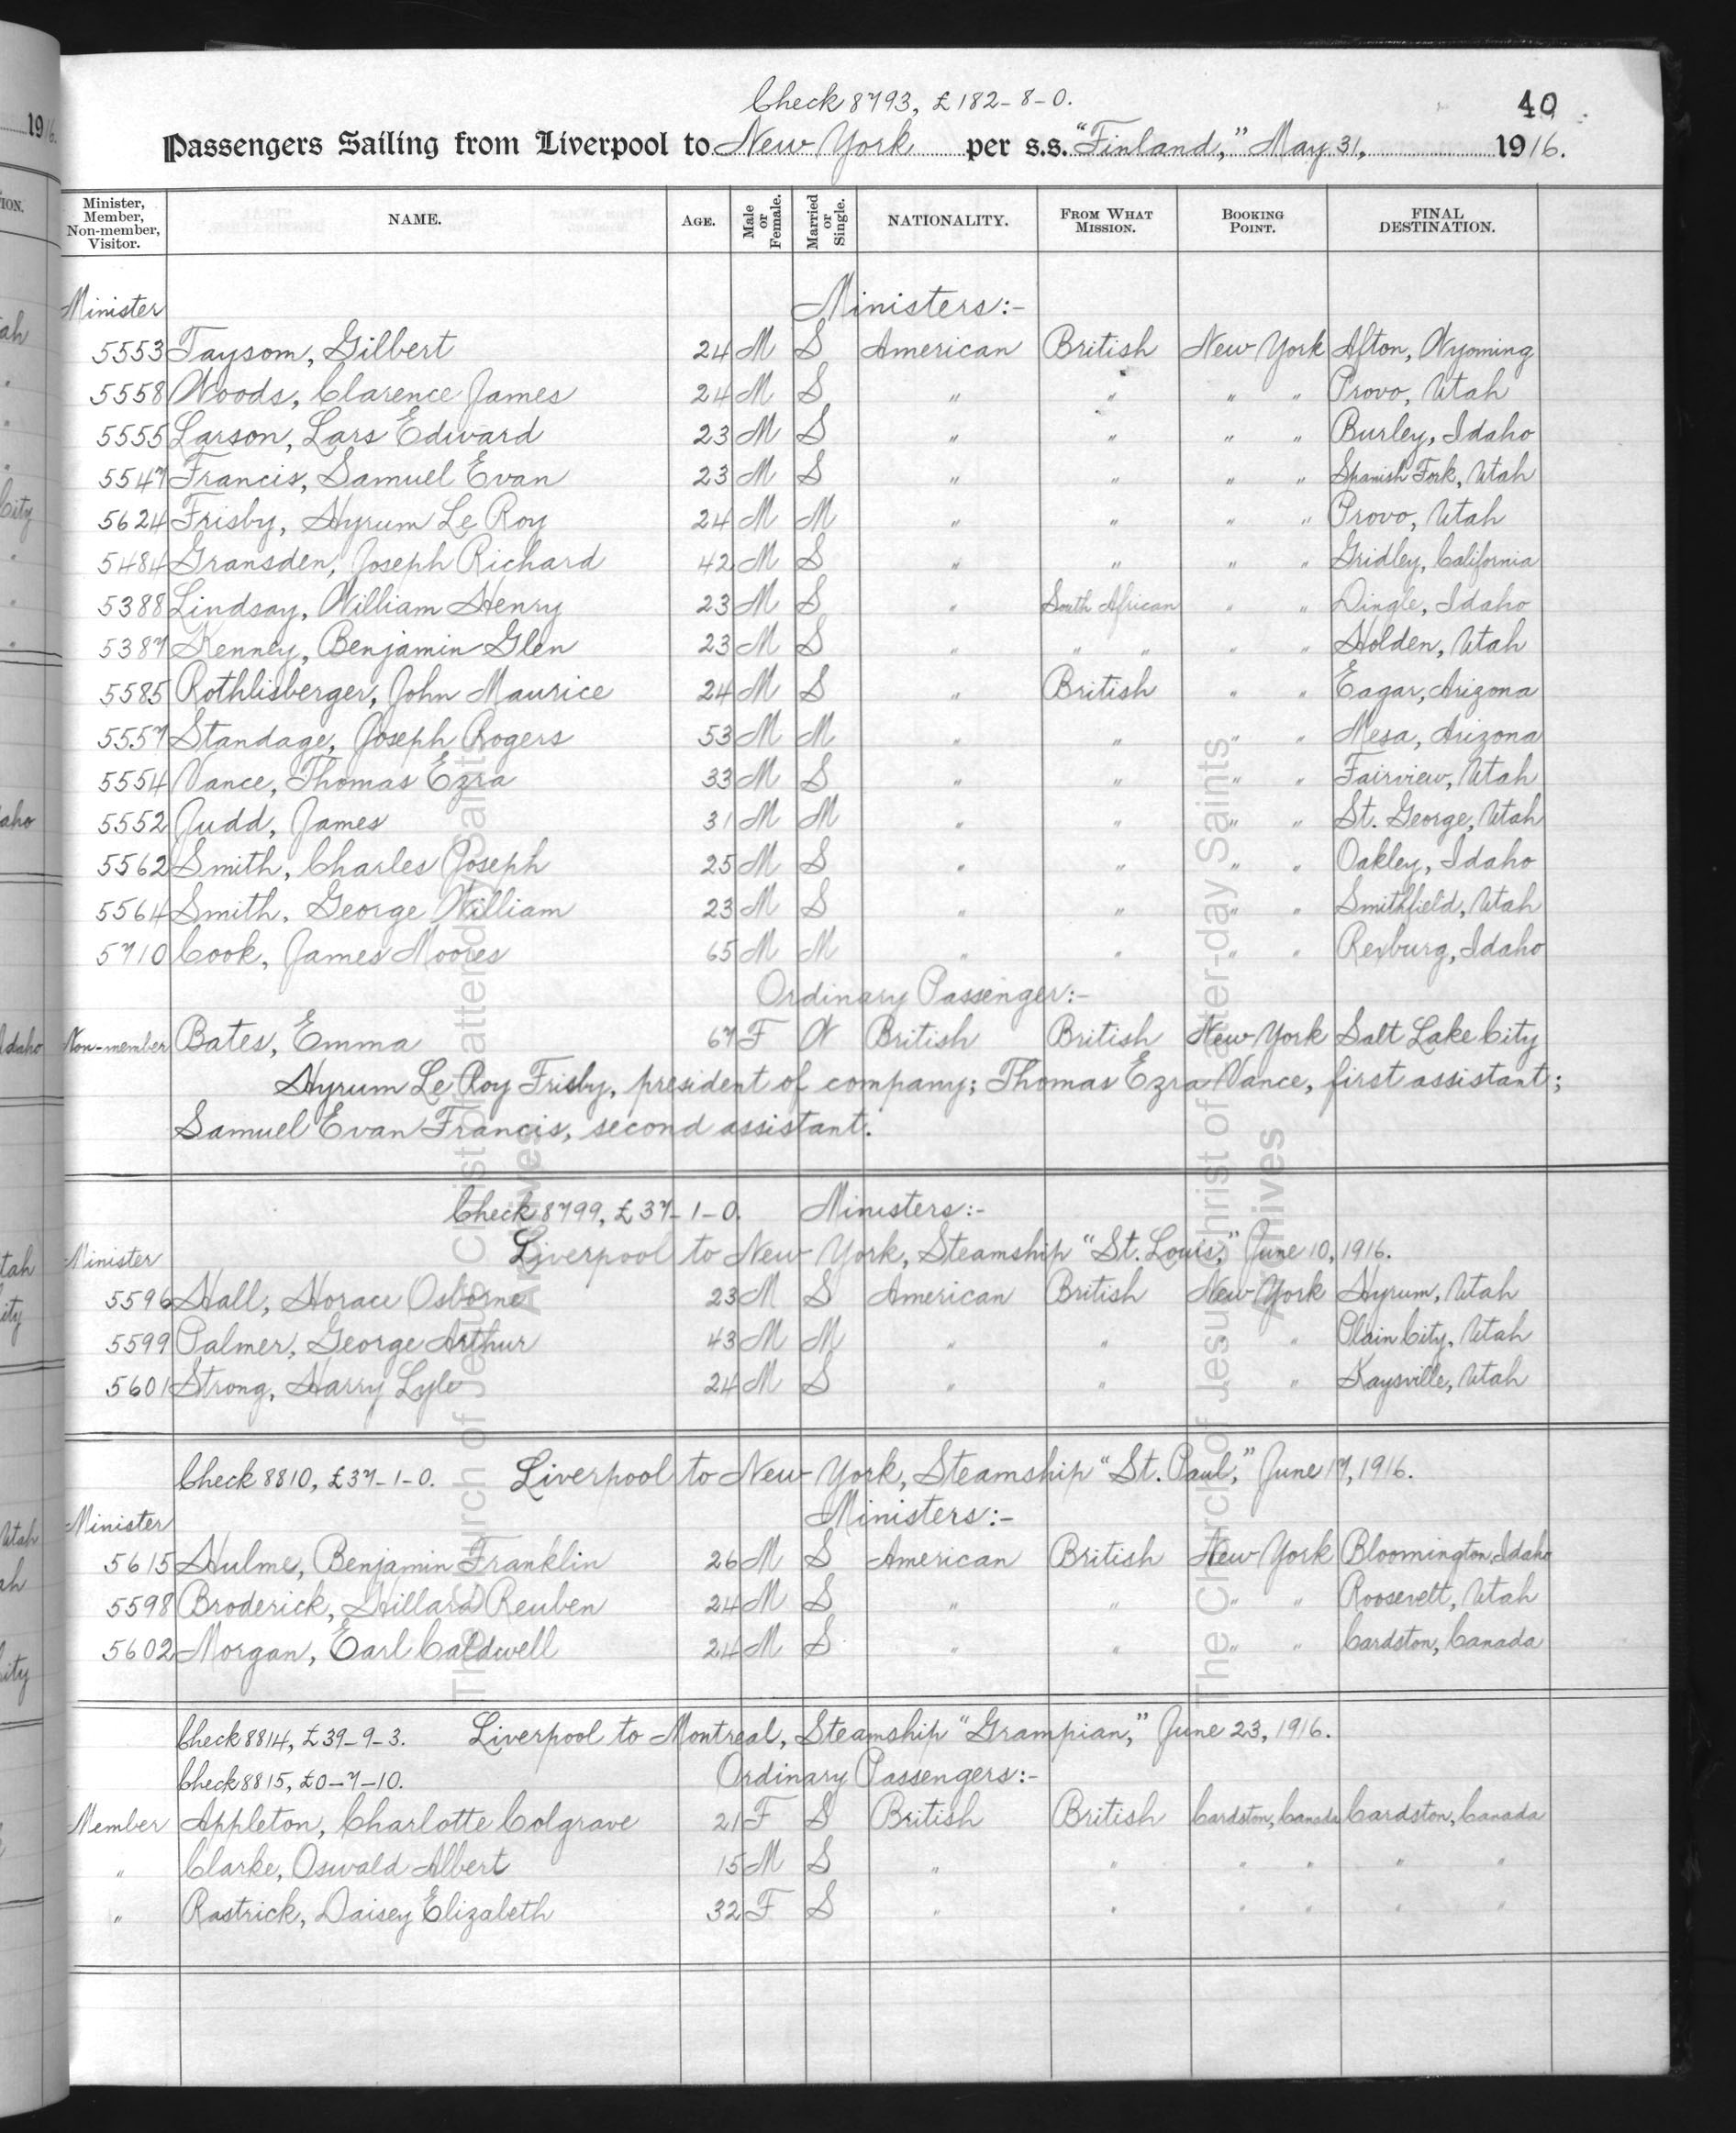 Check 8793, £182-8-0.
40
Passengers Sailing from Liverpool to New York per s.s. "Finland," May 31, 1916.
Minister, Member, Non-member, Visitor. NAME. AGE. Male or Female. Married or Single. NATIONALITY. FROM WHAT MISSION. BOOKING POINT. FINAL DESTINATION.
Minister Ministers:-
5553 Taysom, Gilbert 24 M S American British New York Afton, Wyoming
5558 Woods, Clarence James 24 M S " " " " Provo, Utah
5555 Larson, Lars Edward 23 M S " " " " Burley, Idaho
5547 Francis, Samuel Evan 23 M S " " " " Spanish Fork, Utah
5624 Frisby, Hyrum Le Roy 24 M M " " " " Provo, Utah
5484 Gransden, Joseph Richard 42 M S " " " " Gridley, California
5388 Lindsay, William Henry 23 M S " South African " " Dingle, Idaho
5387 Kenney, Benjamin Glen 23 M S " " " " " Holden, Utah
5585 Rothlisberger, John Maurice 24 M S " British " " Eagar, Arizona
5557 Standage, Joseph Rogers 53 M M " " " " Mesa, Arizona
5554 Vance, Thomas Ezra 33 M S " " " " Fairview, Utah
5552 Judd, James 31 M M " " " " St. George, Utah
5562 Smith, Charles Joseph 25 M S " " " " Oakley, Idaho
5564 Smith, George William 23 M S " " " " Smithfield, Utah
5710 Cook, James Moores 65 M M " " " " Rexburg, Idaho
Ordinary Passenger:-
Non-member Bates, Emma 67 F W British British New York Salt Lake City
Hyrum Le Roy Frisby, president of company; Thomas Ezra Vance, first assistant;
Samuel Evan Francis, second assistant.
Check 8799, £37-1-0. Ministers:-
Liverpool to New York, Steamship "St. Louis," June 10, 1916.
Minister
5596 Hall, Horace Osborne 23 M S American British New York Hyrum, Utah
5599 Palmer, George Arthur 43 M M " " " " Plain City, Utah
5601 Strong, Harry Lyle 24 M S " " " " Kaysville, Utah
Check 8810, £37-1-0. Liverpool to New York, Steamship "St. Paul," June 17, 1916.
Ministers:-
Minister
5615 Hulme, Benjamin Franklin 26 M S American British New York Bloomington, Idaho
5598 Broderick, Hillard Reuben 24 M S " " " " Roosevelt, Utah
5602 Morgan, Earl Caldwell 24 M S " " " " Cardston, Canada
Check 8814, £39-9-3. Liverpool to Montreal, Steamship "Grampian," June 23, 1916.
Check 8815, £0-7-10. Ordinary Passengers:-
Member Appleton, Charlotte Colgrave 21 F S British British Cardston, Canada Cardston, Canada
" Clarke, Oswald Albert 15 M S " " " " " "
" Rastrick, Daisey Elizabeth 32 F S " " " " " "
The Church of Jesus Christ of Latter-day Saints
Archives
The Church of Jesus Christ of Latter-day Saints
Archives